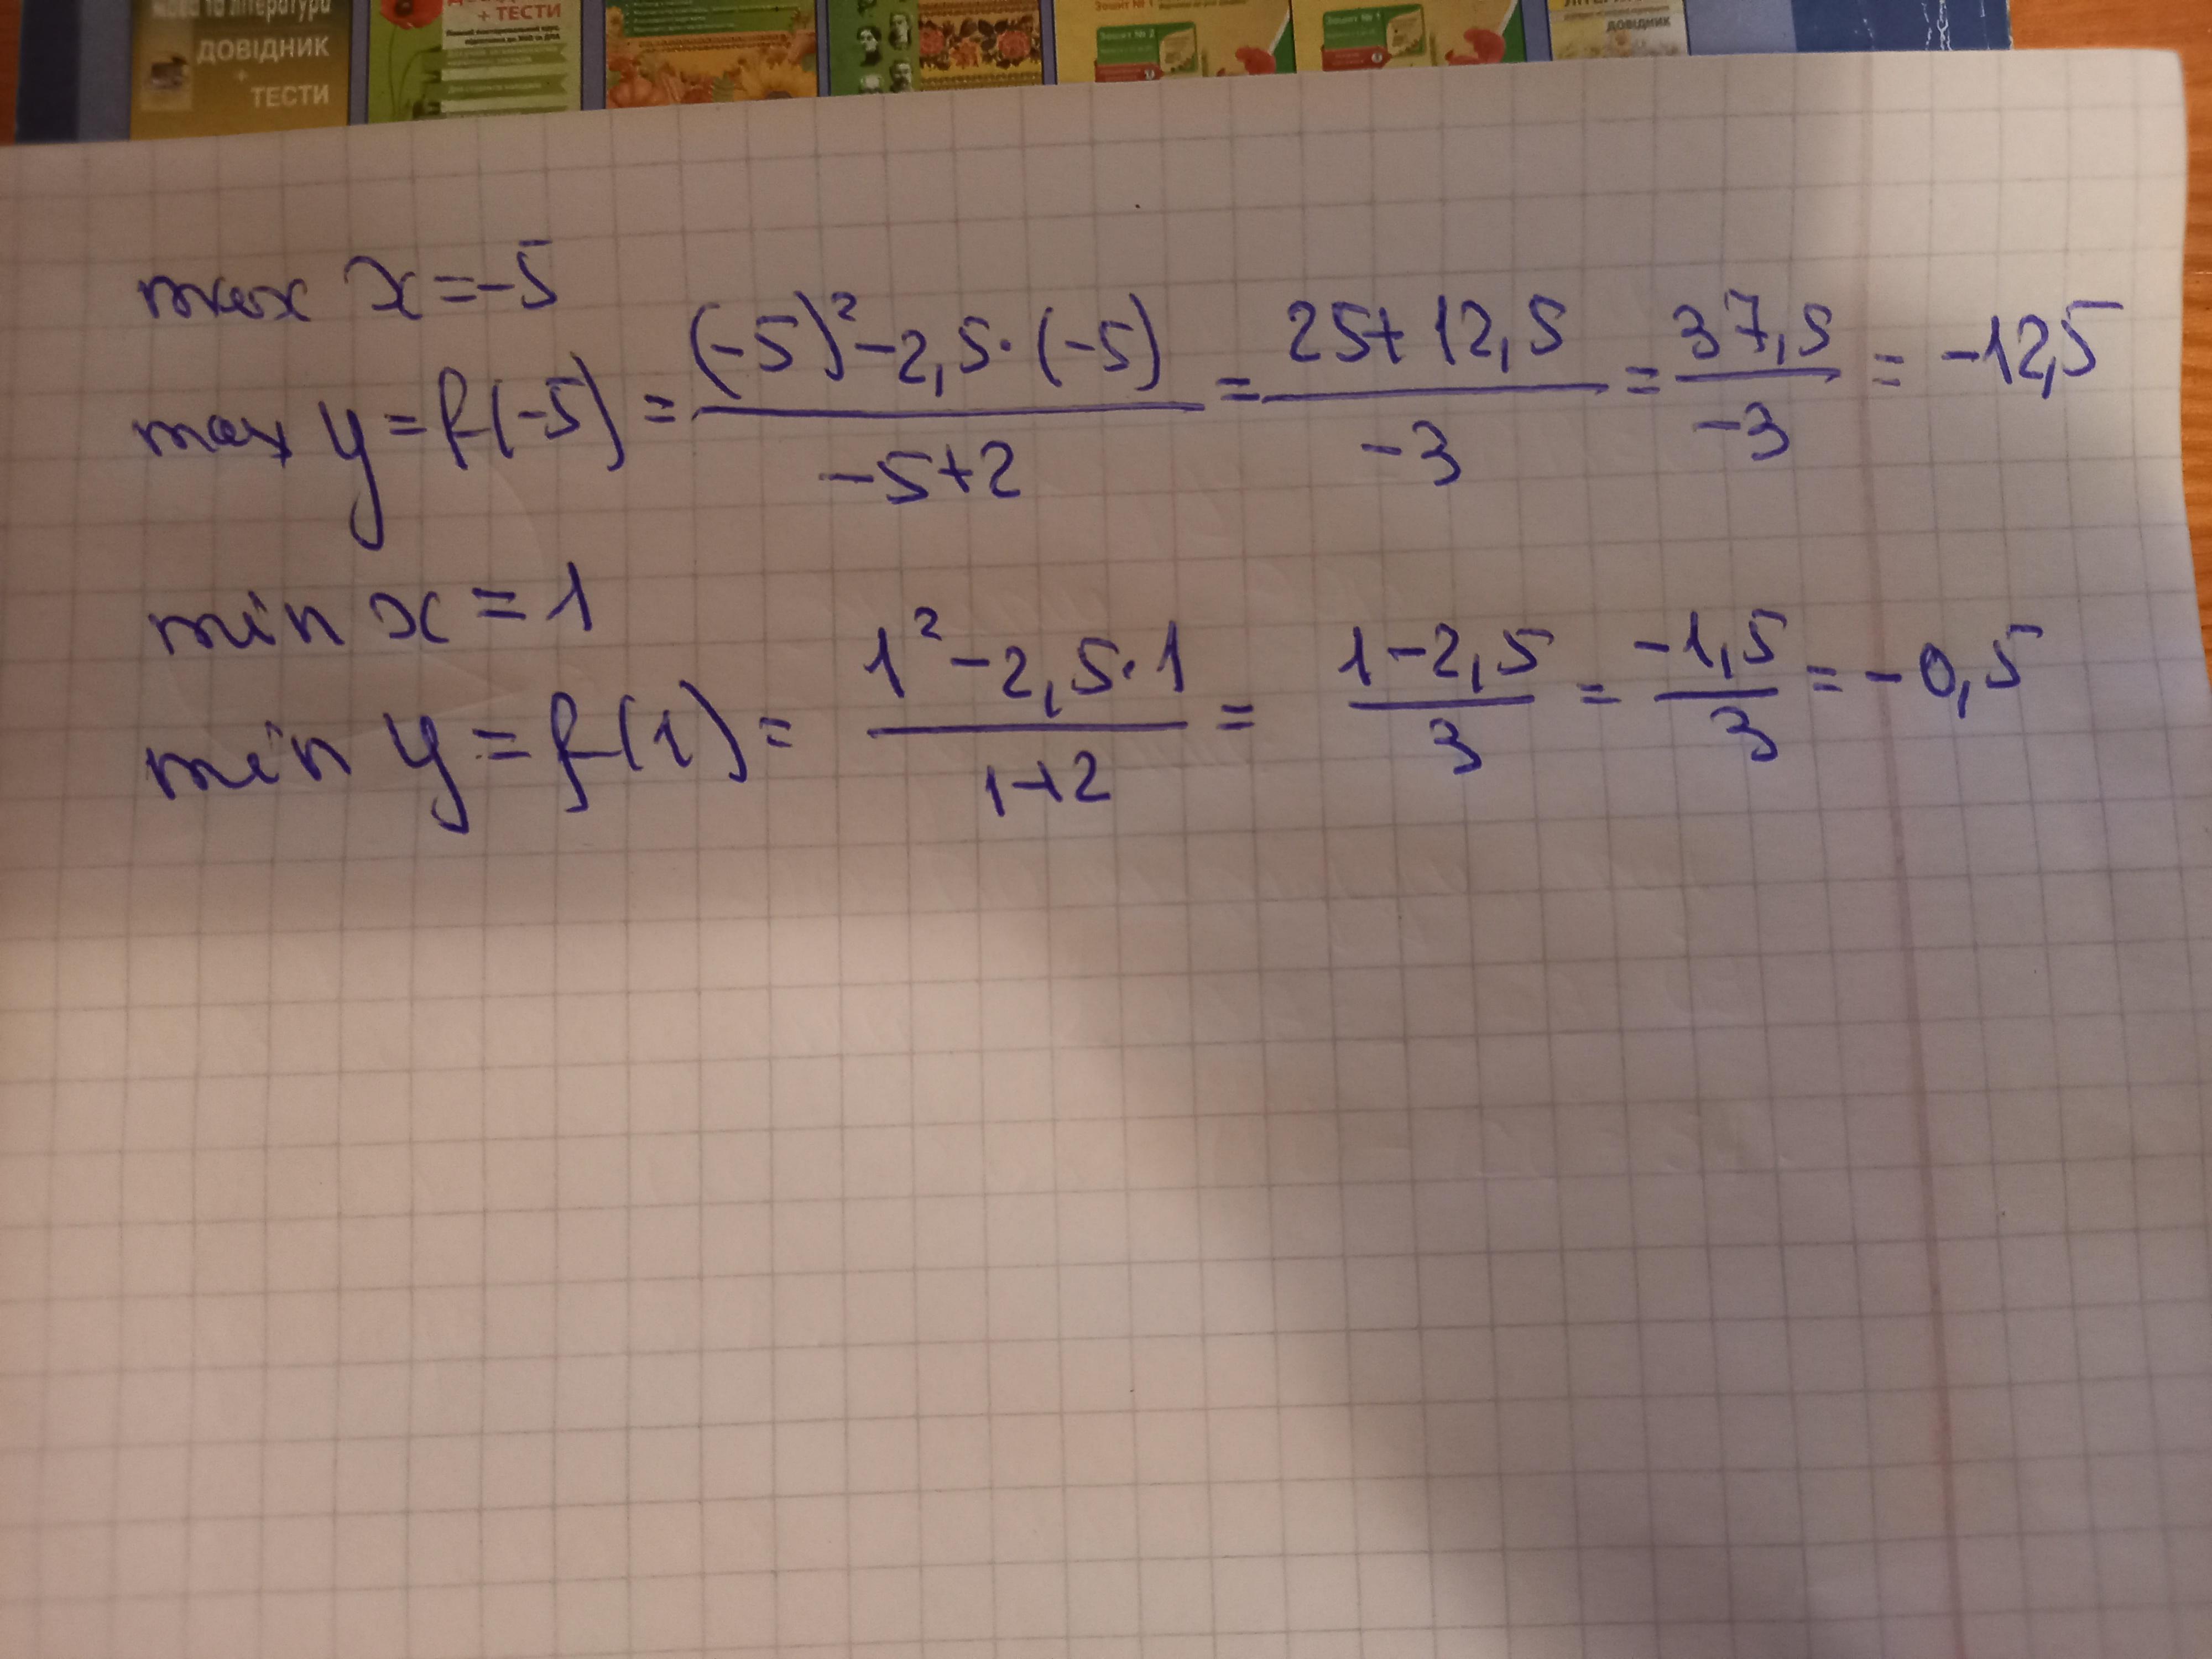 ДОВІДНИК
+
ТЕСТИ
+ ТЕСТИ
Зошит № 1
Зошит № 2
Зошит № 1
ДОВІДНИК
max x = -5
max y = f(-5) = \frac{(-5)^2 - 2,5 · (-5)}{-5+2} = \frac{25+12,5}{-3} = \frac{37,5}{-3} = -12,5
min x = 1
min y = f(1) = \frac{1^2 - 2,5 · 1}{1+2} = \frac{1-2,5}{3} = \frac{-1,5}{3} = -0,5